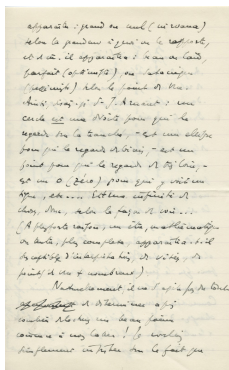 apparaîtra : grand ou nul (nirvana)
selon la grandeur à quoi on le rapporte,
et même, il apparaîtra : beau ou laid,
parfait (optimiste) ou
(pessimiste) selon le point de vue.
Ainsi, dirai-je si J. : un
cercle est une droite pour qui le
regarde sur la tranche, – est une ellipse
pour qui le regarde de biais, – est un
point pour qui le regarde de très loin, –
est un 0 (zéro) pour qui y voit un
signe, etc... Est une infinité de
choses, donc, selon la façon de voir...
(A plus forte raison, un être, mathématique
ou autre, plus complexe, apparaîtra-t-il
susceptible d'interprétations, de visées, de
points de vue + nombreux)
Naturellement il ne s'agit pas de
de déterminer a
combien de choses un beau
comme à nos yeux ! Je voudrais
simplement insister sur le fait que